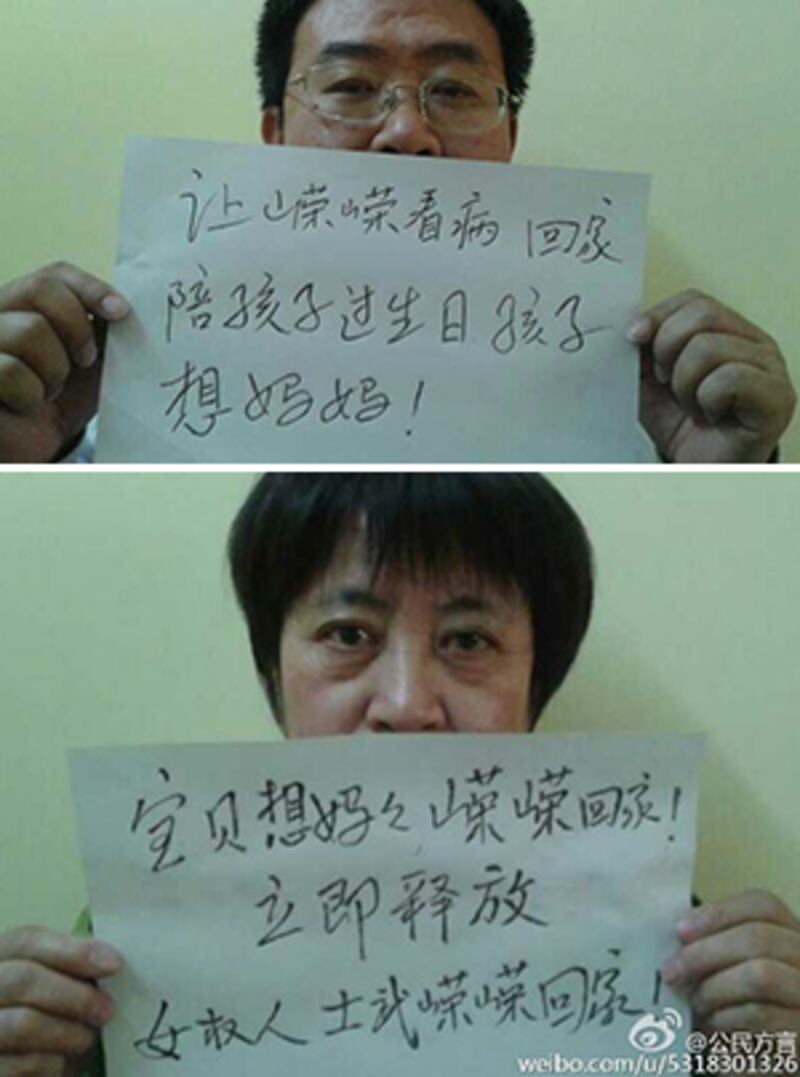 让嵘嵘看病 回家
陪孩子过生日孩子
想妈妈!
宝贝想妈々,嵘嵘回家!
立即释放
女权人士武嵘嵘回家!
@公民方言
weibo.com/u/5318301326